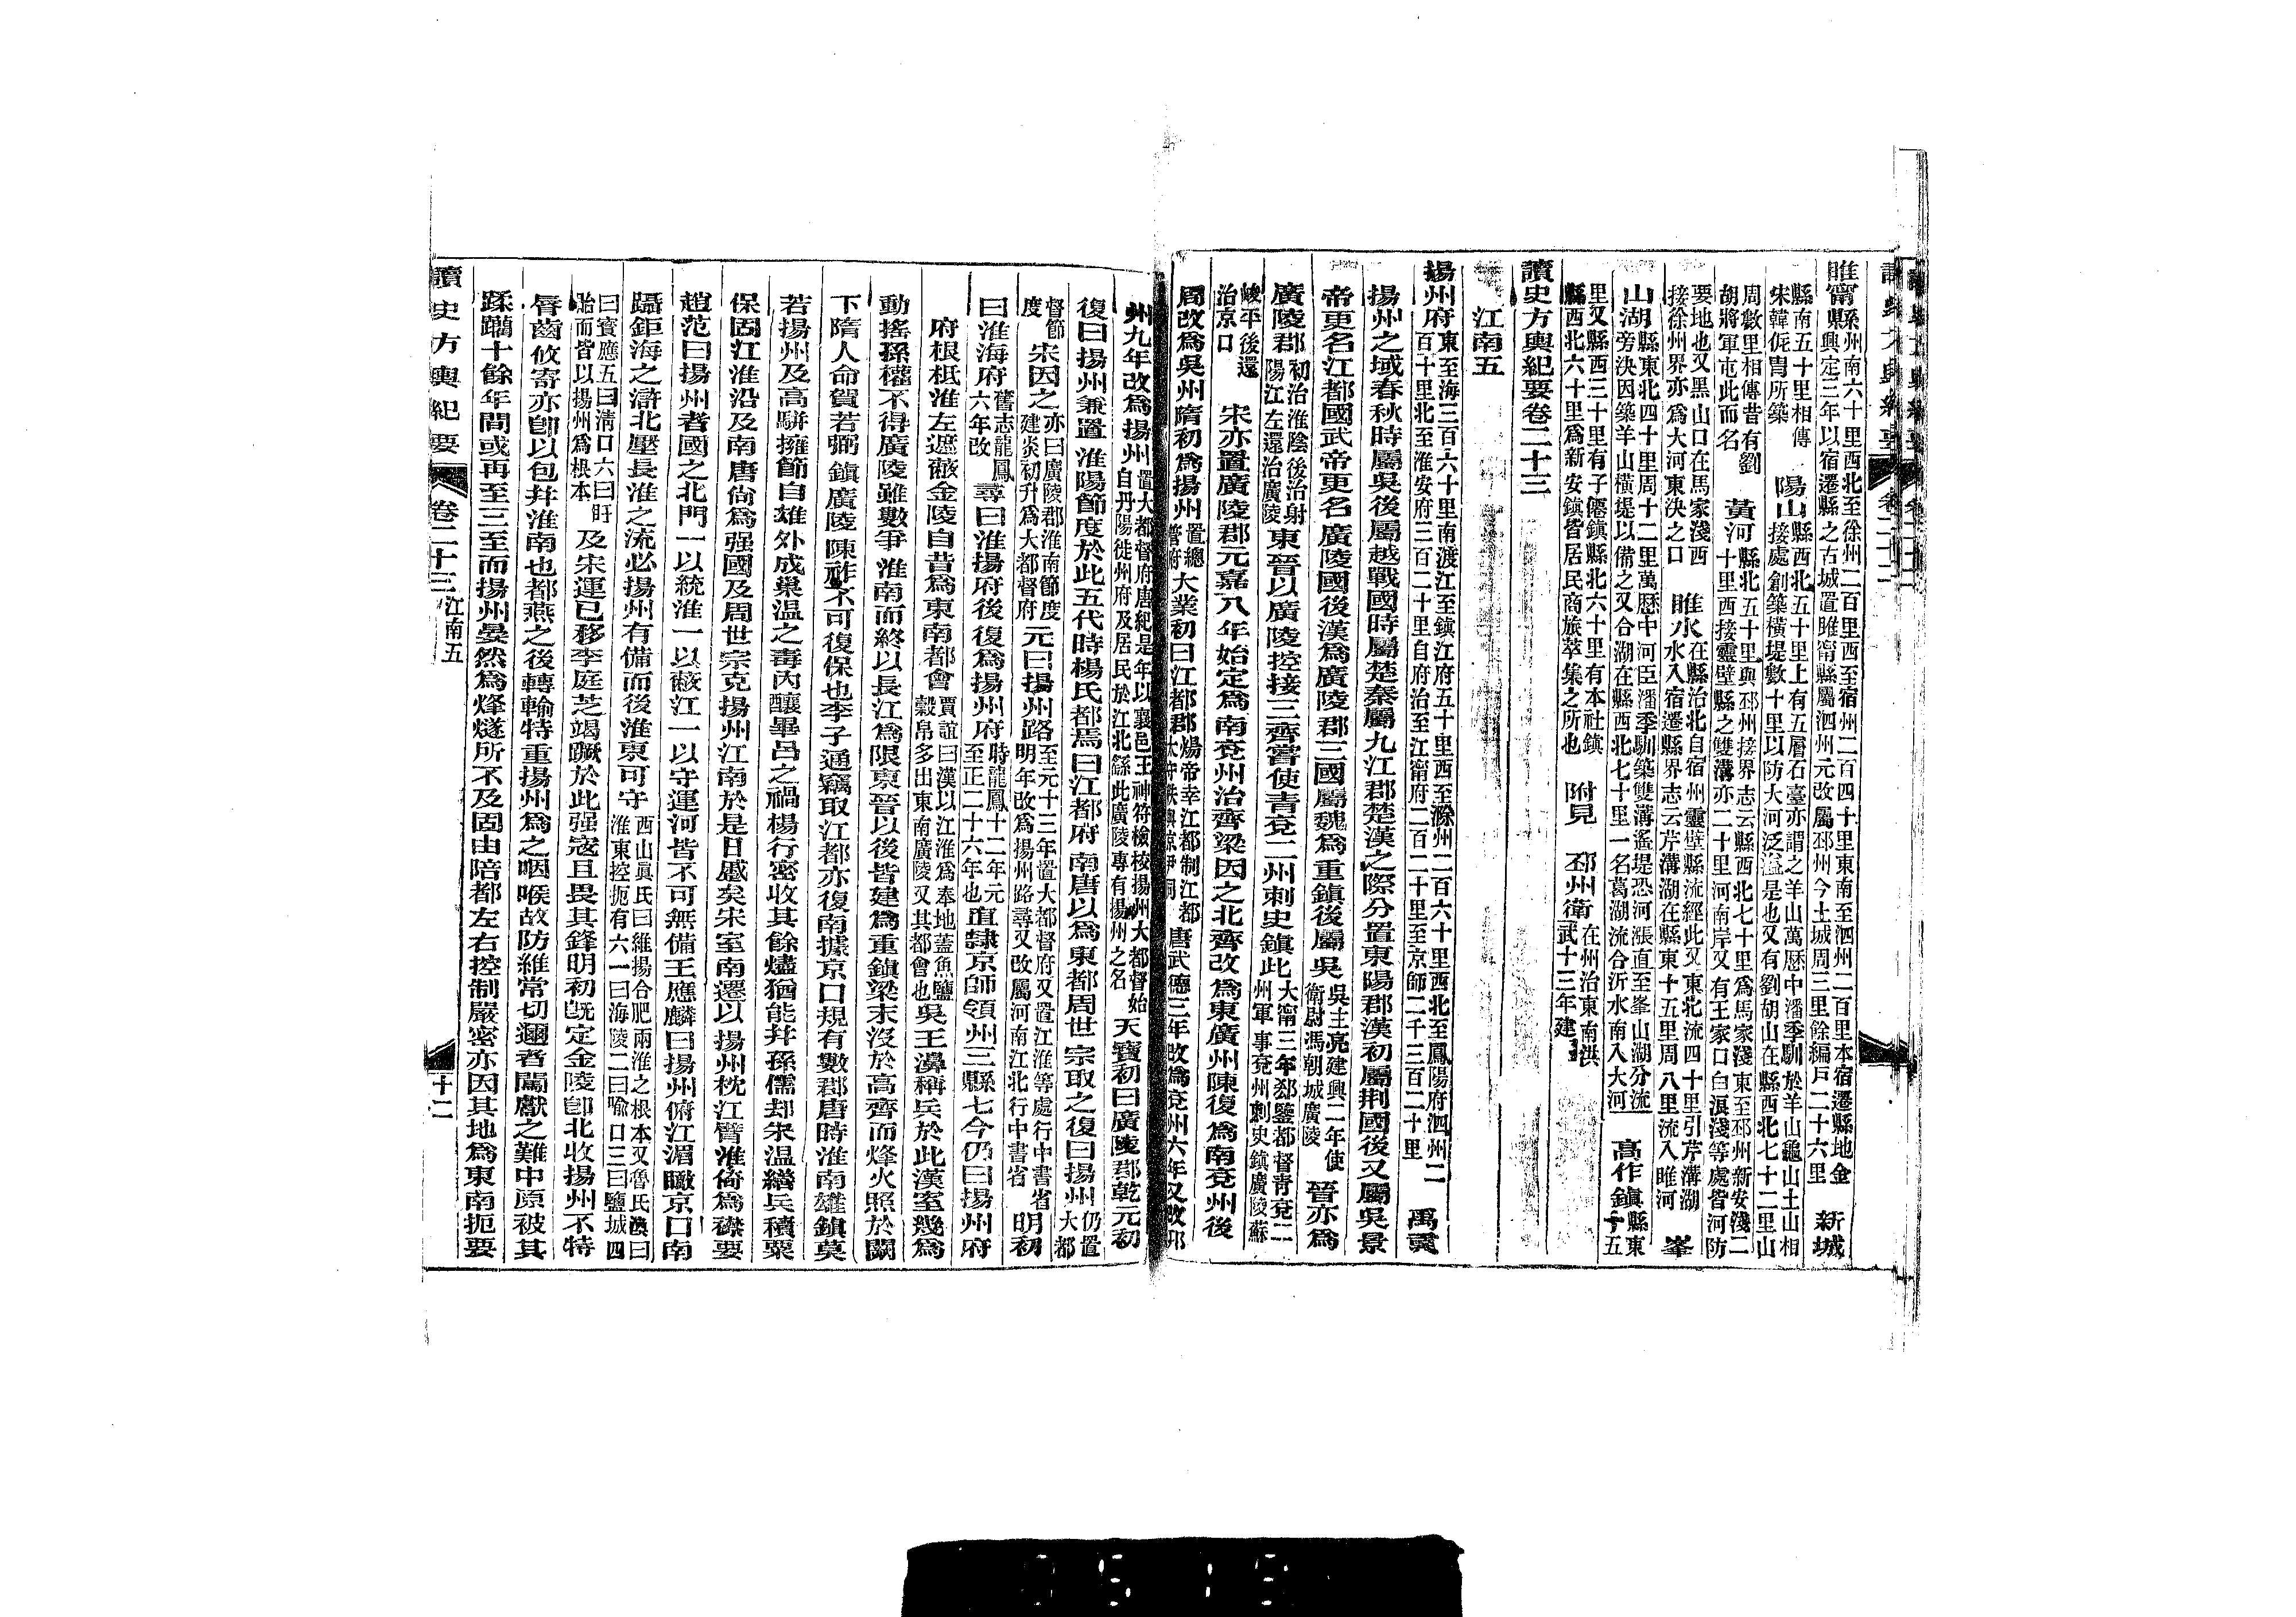 睢寧縣州南六十里西北至徐州二百里西至宿州二百四十里東南至泗州二百里本宿遷縣地金
興定三年以宿遷縣之古城置睢甯縣屬泗州元改屬邳州今土城周三里餘編戶二十六里 新城
縣南五十里相傳
宋韓侂冑所築 陽山縣西北五十里上有五層石臺亦謂之羊山萬歷中潘季馴於羊山龜山土山相
接處創築橫堤數十里以防大河泛溢是也又有劉胡山在縣西北七十二里山
周數里相傳昔有劉
胡將軍屯此而名 黃河縣北五十里與邳州接界志云縣西北七十里爲馬家淺東至邳州新安淺二
十里西接靈壁縣之雙溝亦二十里河南岸又有王家口白浪淺等處皆河防
要地也又黑山口在馬家淺西
接徐州界亦爲大河東決之口 睢水在縣治北自宿州靈壁縣流經此又東北流四十里引芹溝湖
水入宿遷縣界志云芹溝湖在縣東十五里周八里流入睢河 峯
山湖縣東北四十里周十二里萬歷中河臣潘季馴築雙溝遙堤恐河漲直至峯山湖分流
旁決因築羊山橫堤以備之又合湖在縣西北七十里一名葛湖流合沂水南入大河 高作鎭縣東
十五
里又縣西三十里有子僊鎭縣北六十里有本社鎭
縣西北六十里爲新安鎭皆居民商旅萃集之所也 附見 邳州衛在州治東南洪
武十三年建
讀史方輿紀要卷二十三
江南五
揚州府東至海三百六十里南渡江至鎭江府五十里西至滁州二百六十里西北至鳳陽府泗州二
百十里北至淮安府三百二十里自府治至江甯府二百二十里至京師二千三百二十里 禹貢
揚州之域春秋時屬吳後屬越戰國時屬楚秦屬九江郡楚漢之際分置東陽郡漢初屬荆國後又屬吳景
帝更名江都國武帝更名廣陵國後漢爲廣陵郡三國屬魏爲重鎭後屬吳吳主亮建興二年使
衛尉馮朝城廣陵 晉亦爲
廣陵郡初治淮陰後治射
陽江左還治廣陵東晉以廣陵控接三齊嘗使靑兗二州刺史鎭此大甯三年郄鑒都督靑兗二
州軍事兗州刺史鎭廣陵蘇
峻平後還
治京口 宋亦置廣陵郡元嘉八年始定爲南兗州治齊梁因之北齊改爲東廣州陳復爲南兗州後
周改爲吳州隋初爲揚州置總
管府大業初曰江都郡煬帝幸江都制江都
太守秩與京尹同 唐武德三年改爲兗州六年又改邗
州九年改爲揚州置大都督府唐紀是年以襄邑王神符檢校揚州大都督始
自丹陽徙州府及居民於江北繇此廣陵專有揚州之名 天寶初曰廣陵郡乾元初
復曰揚州兼置淮陽節度於此五代時楊氏都焉曰江都府南唐以爲東都周世宗取之復曰揚州仍置
大都
督節
度 宋因之亦曰廣陵郡淮南節度
建炎初升爲大都督府 元曰揚州路至元十三年置大都督府又置江淮等處行中書省
明年改爲揚州路尋又改屬河南江北行中書省 明初
曰淮海府舊志龍鳳
六年改 尋曰淮揚府後復爲揚州府時龍鳳十二年元
至正二十六年也直隸京師領州三縣七今仍曰揚州府
府根柢淮左遮蔽金陵自昔爲東南都會賈誼曰漢以江淮爲奉地蓋魚鹽
穀帛多出東南廣陵又其都會也吳王濞稱兵於此漢室幾爲
動搖孫權不得廣陵雖數爭淮南而終以長江爲限東晉以後皆建爲重鎭梁末沒於高齊而烽火照於闕
下隋人命賀若弼鎭廣陵陳祚不可復保也李子通竊取江都亦復南據京口規有數郡唐時淮南雄鎭莫
若揚州及高駢擁節自雄外成巢溫之毒內釀畢呂之禍楊行密收其餘燼猶能并孫儒却朱溫繕兵積粟
保固江淮沿及南唐尙爲强國及周世宗克揚州江南於是日蹙矣宋室南遷以揚州枕江臂淮倚爲襟要
趙范曰揚州者國之北門一以統淮一以蔽江一以守運河皆不可無備王應麟曰揚州俯江湄瞰京口南
躡鉅海之滸北壓長淮之流必揚州有備而後淮東可守西山眞氏曰維揚合肥兩淮之根本又魯氏曰
淮東控扼有六一曰海陵二曰喻口三曰鹽城四
曰寶應五曰清口六曰盱
眙而皆以揚州爲根本 及宋運已移李庭芝竭蹶於此强寇且畏其鋒明初既定金陵卽北收揚州不特
脣齒攸寄亦卽以包并淮南也都燕之後轉輸特重揚州爲之咽喉故防維常切邇者闖獻之難中原被其
蹂躪十餘年間或再至三至而揚州晏然爲烽燧所不及固由陪都左右控制嚴密亦因其地爲東南扼要
讀史方輿紀要 卷二十三 江南五 十二